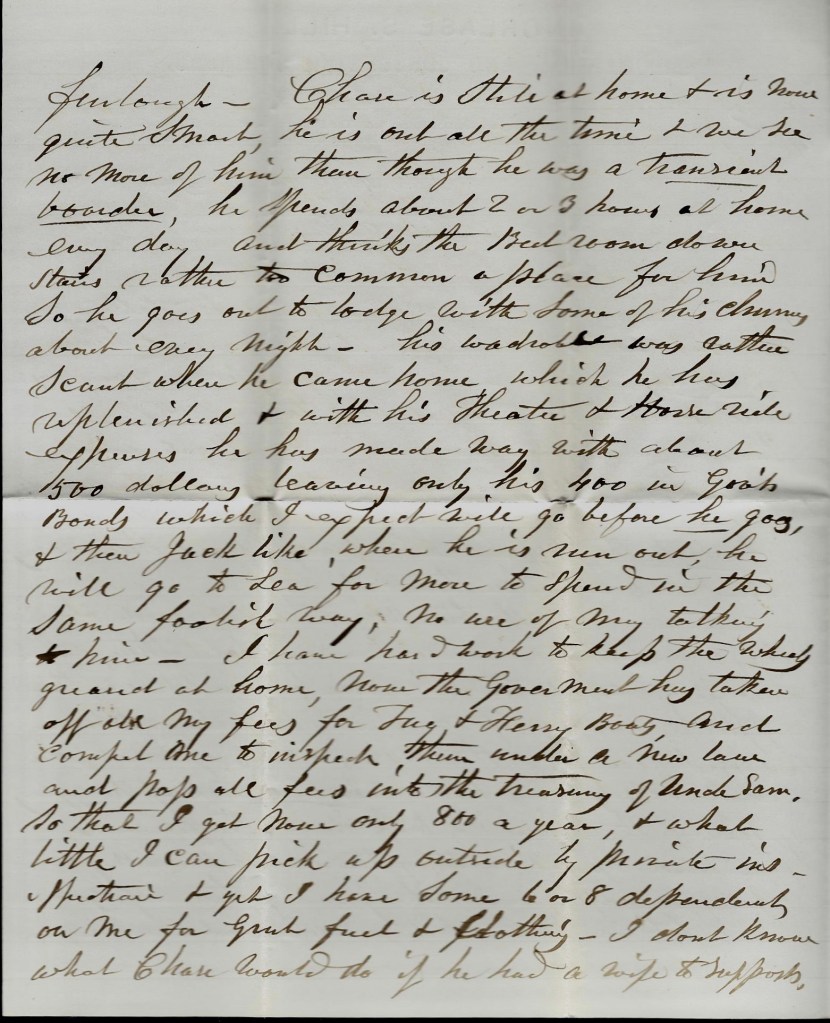 furlough – Chase is still at home & is now
quite smart, he is out all the time & we see
no more of him than though he was a transient
boarder, he spends about 2 or 3 hours at home
every day and thinks the Bed room down
stairs rather too common a place for him
So he goes out to lodge with some of his chums
about every night – his wardrobe was rather
scant when he came home which he has
replenished & with his Theatre & Horse ride
expenses he has made way with about
500 dollars leaving only his 400 in Gov't
Bonds which I expect will go before he goes,
& then Jack like, when he is run out, he
will go to Sea for more to spend in the
same foolish way, no use of my talking
to him – I have hard work to keep the wheels
greased at home, now the Goverment has taken
off all my fees for Tug & Ferry Boats, and
compel me to inspect them under a new law
and pass all fees into the treasury of Uncle Sam.
So that I get now only 800 a year, & what
little I can pick up outside by private ins-
pection & yet I have some 6 or 8 dependent
on me for Grub fuel & Clothing – I dont know
what Chase would do if he had a wife to support,